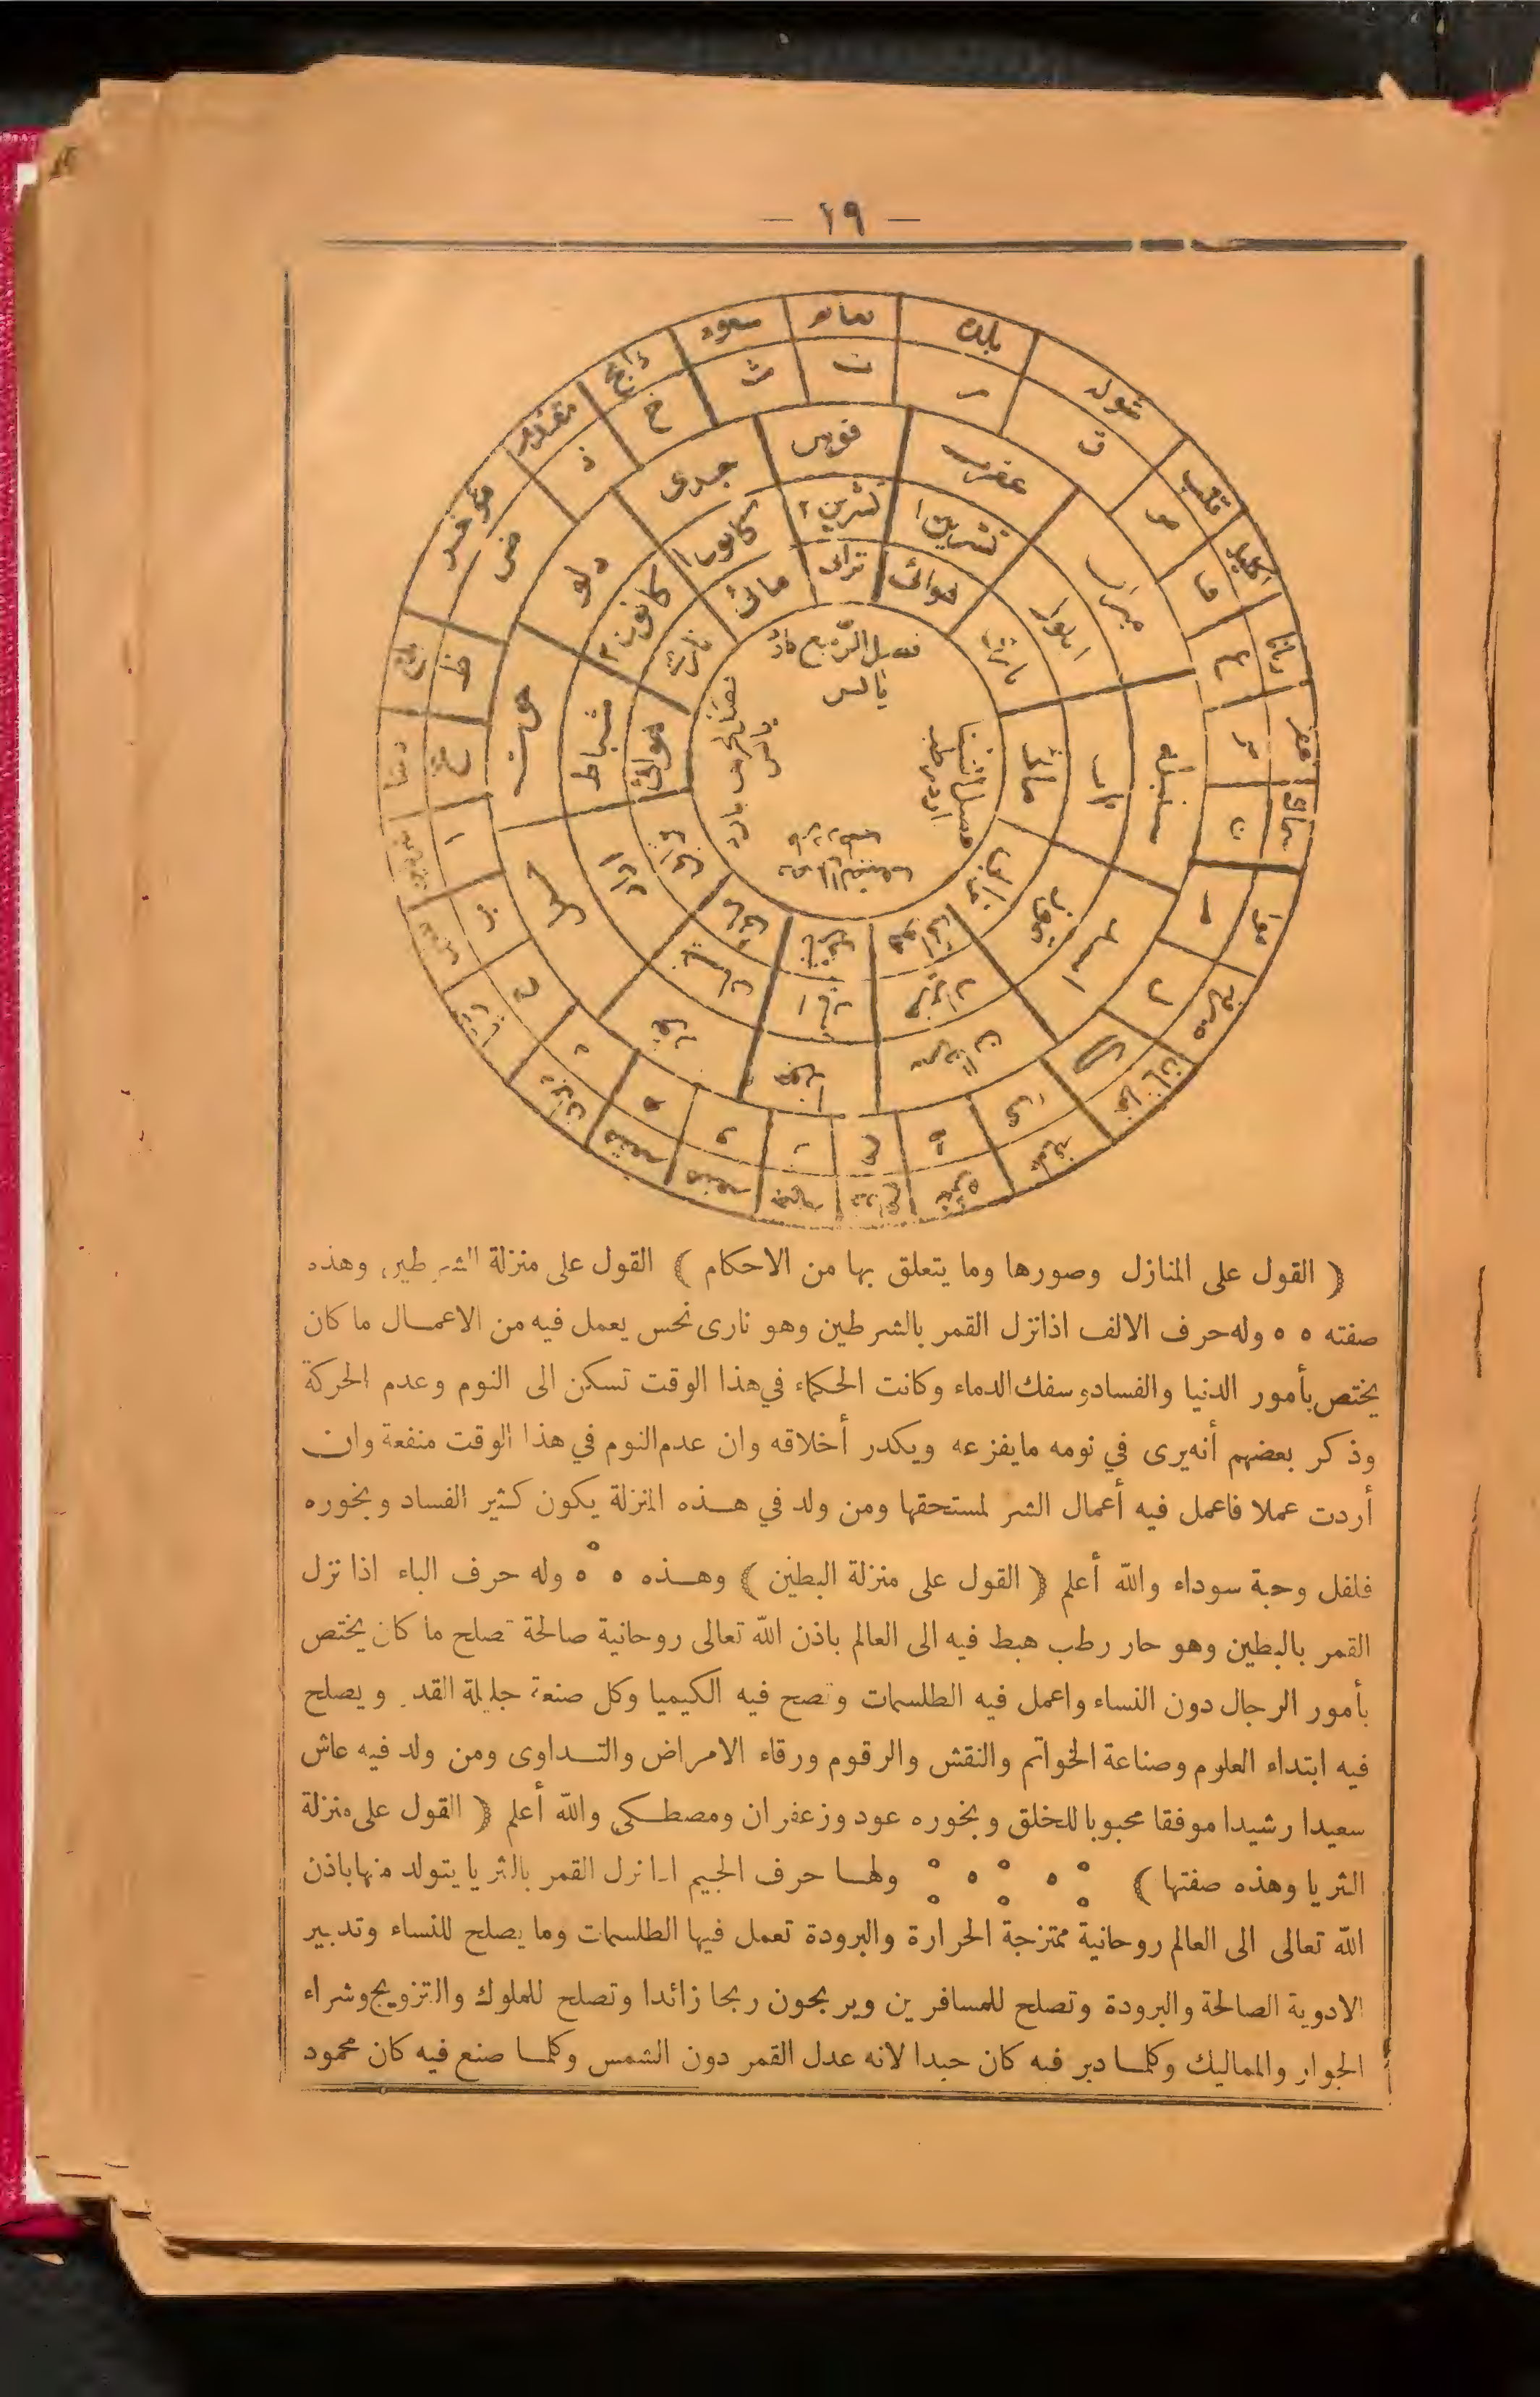 — ١٩ —
بلده
نعايم
سعود
ذابح
مقدم
مؤخر
شوله
قلب
اكليل
ت
ث
خ
ذ
ض
ظ
غ
قوس
عقرب
جدى
دلو
حوت
ميزان
سنبله
اسد
سرطان
جوزا
ثور
حمل
تشرين ١
تشرين ٢
كانون ١
كانون ٢
شباط
اذار
ايار
حزيران
تموز
اب
ايلول
هوائى
ترابى
مائى
نارى
هوائى
فصل الربيع
يابس
( القول على المنازل وصورها وما يتعلق بها من الاحكام ) القول على منزلة الشرطين وهذه
صفته ه ه وله حرف الالف اذا نزل القمر بالشرطين وهو نارى نحس يعمل فيه من الاعمال ما كان
يختص بأمور الدنيا والفساد وسفك الدماء وكانت الحكماء في هذا الوقت تسكن الى النوم وعدم الحركة
وذكر بعضهم أنه يرى في نومه ما يفزعه ويكدر أخلاقه وان عدم النوم في هذا الوقت منفعة وان
أردت عملا فاعمل فيه أعمال الشر لمستحقها ومن ولد في هذه المنزلة يكون كثير الفساد وبخوره
فلفل وحبة سوداء والله أعلم ( القول على منزلة البطين ) وهذه ه ه ه وله حرف الباء اذا نزل
القمر بالبطين وهو حار رطب هبط فيه الى العالم باذن الله تعالى روحانية صالحة تصلح ما كان يختص
بأمور الرجال دون النساء واعمل فيه الطلسمات وتصح فيه الكيميا وكل صنعة جليلة القدر ويصلح
فيه ابتداء العلوم وصناعة الخواتم والنقش والرقوم ورقاء الامراض والتداوى ومن ولد فيه عاش
سعيدا رشيدا موفقا محبوبا للخلق وبخوره عود وزعفران ومصطكى والله أعلم ( القول على منزلة
الثريا وهذه صفتها ) ولها حرف الجيم اذا نزل القمر بالثريا يتولد منها باذن
الله تعالى الى العالم روحانية ممتزجة الحرارة والبرودة تعمل فيها الطلسمات وما يصلح للنساء وتدبير
الادوية الصالحة والبرودة وتصلح للمسافرين ويربحون ربحا زائدا وتصلح للملوك والتزويج وشراء
الجوار والمماليك وكلما دبر فيه كان جيدا لانه عدل القمر دون الشمس وكلما صنع فيه كان محمود